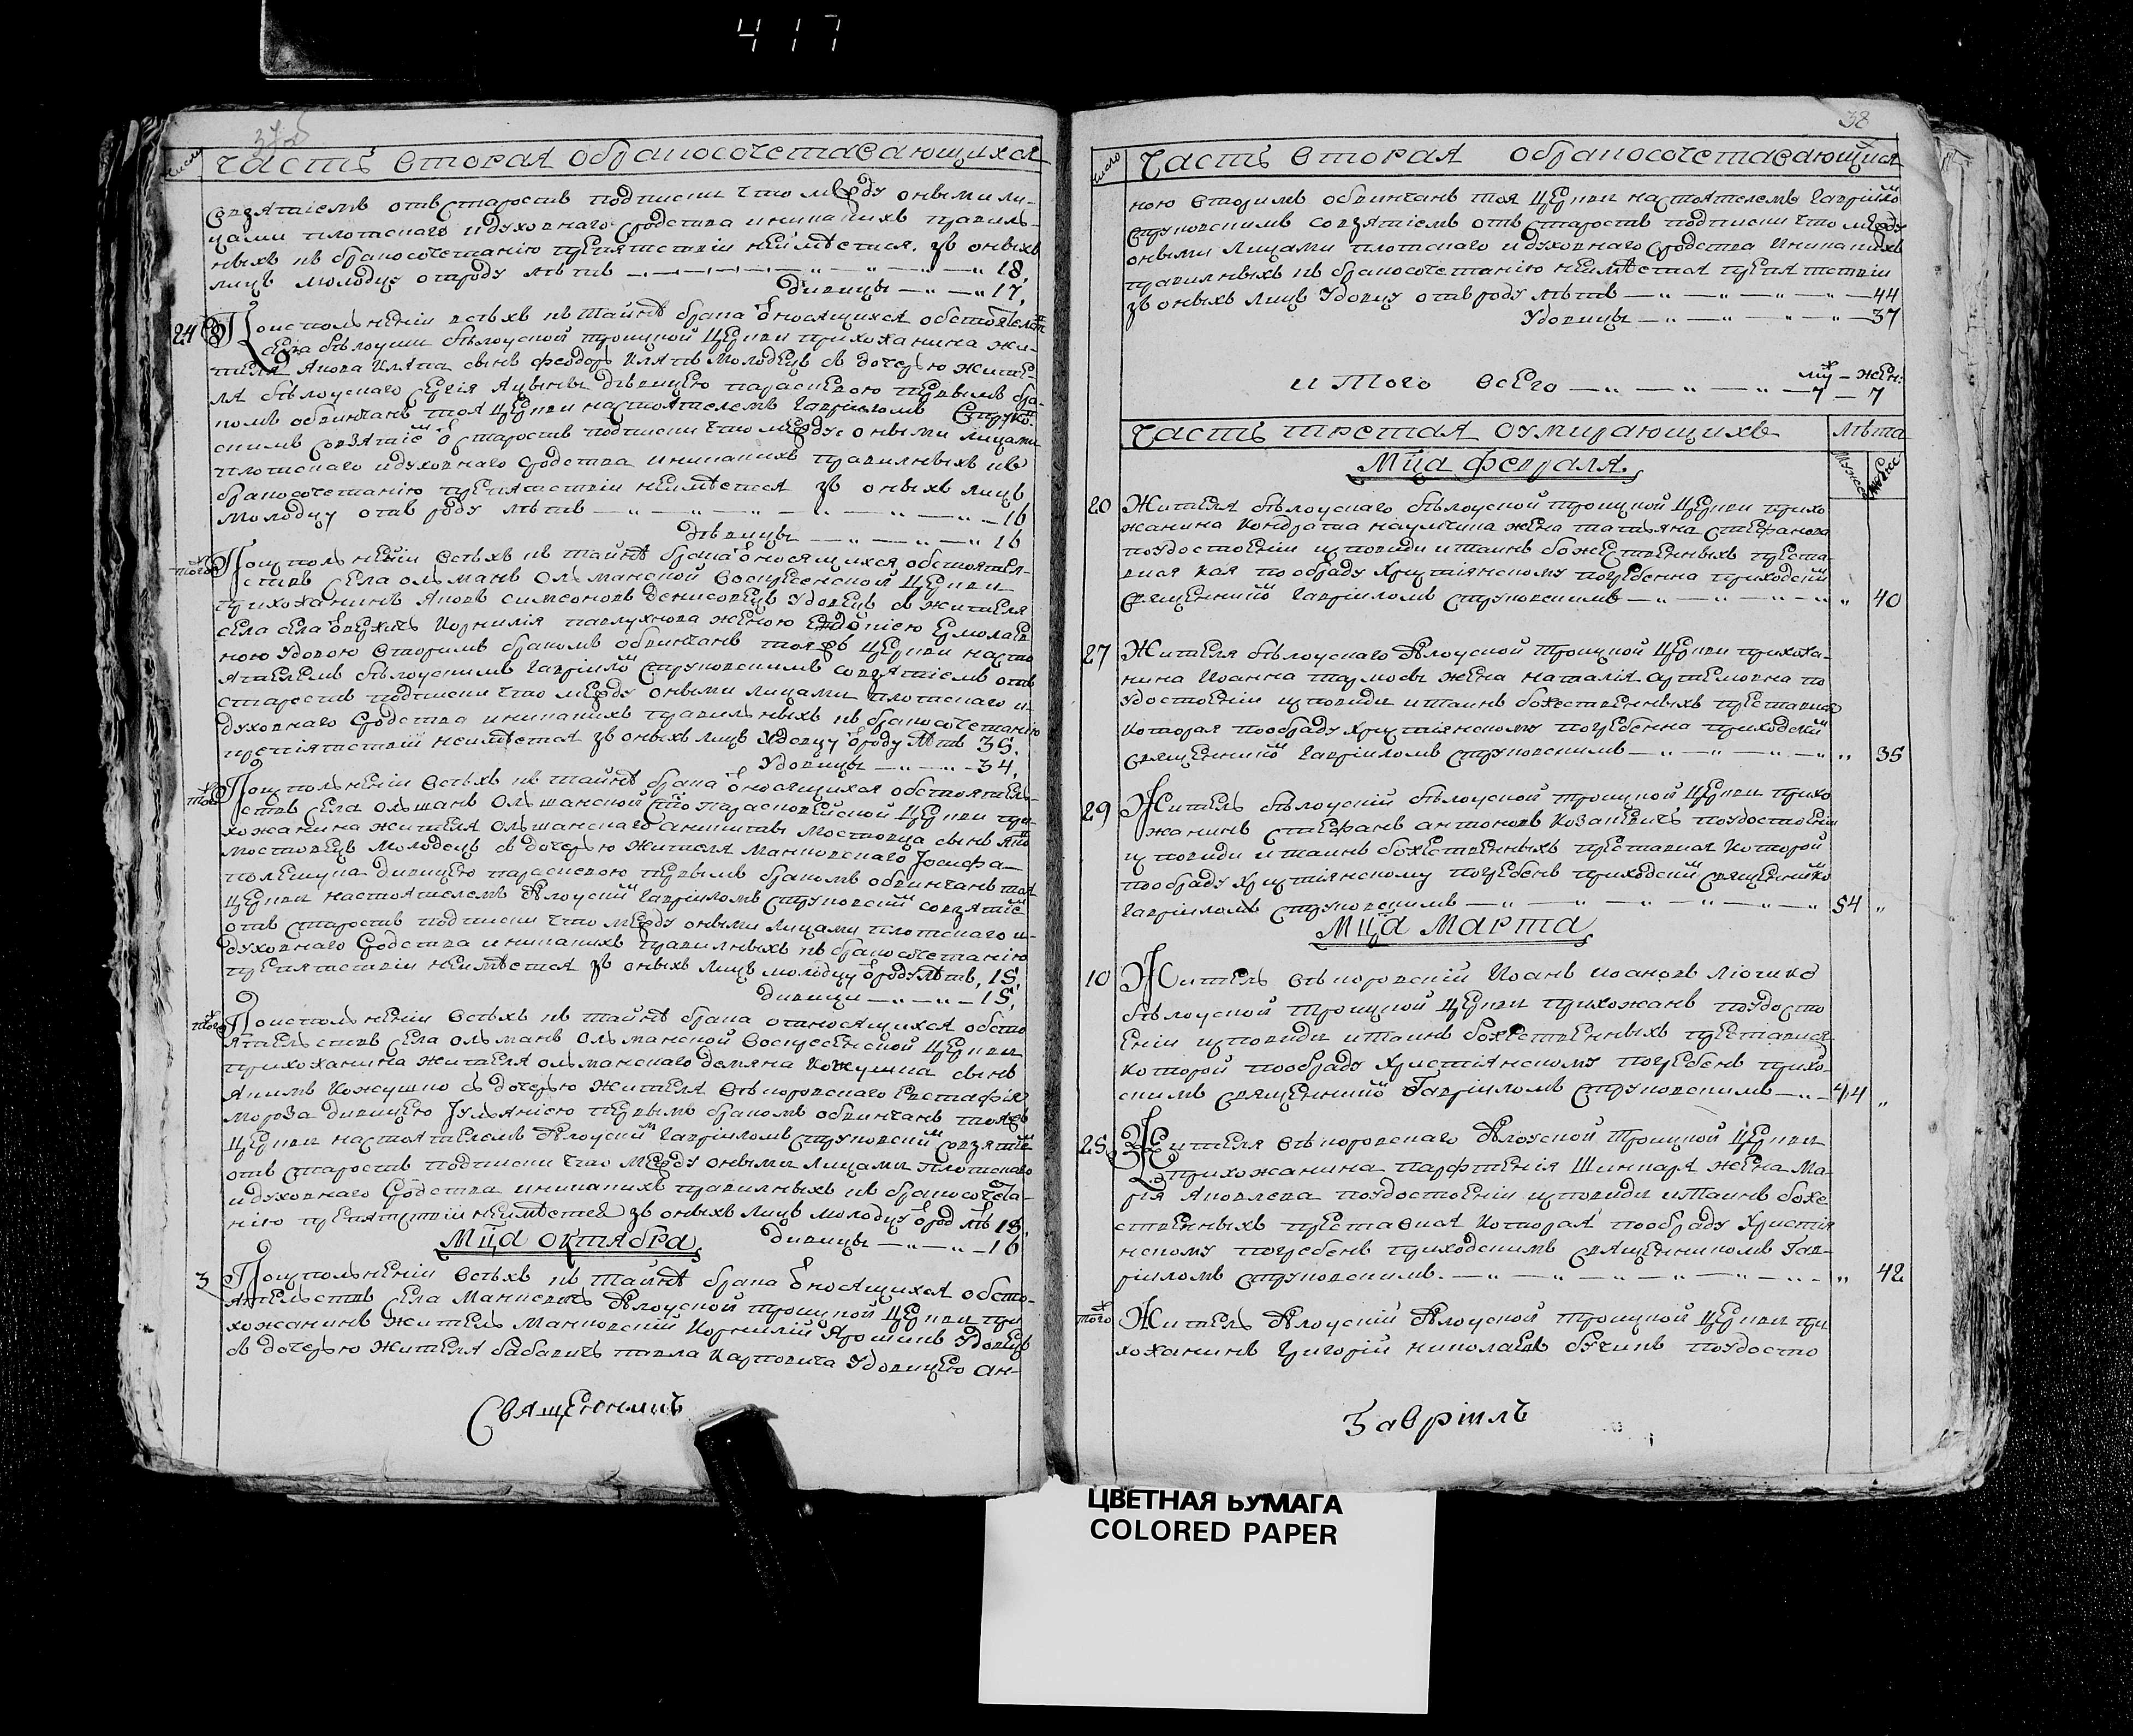 417
число
Часть вторая обракосочетавающихся
совзятіемъ отъ старостъ подписки что между оными ли-
цами плотскаго идуховнаго сродства иникакихъ правиль-
ныхъ къ бракосочетанію препятствіи неимѣется. зъ оныхъ
лицъ молодцу отроду лѣтъ 18,
дивицы 17,
24
Поисполненіи всѣхъ къ тайнѣ брака относящихся обстоятел
села бѣлоуши бѣлоуской троицкой церкви прихожанина жи-
теля Якова сынъ феодоръ молодецъ съ дочерью жите-
ля бѣлоускаго дѣвицею параскевою первымъ бра-
комъ обвинчанъ тоя церкви настоятелемъ Гавріиломъ
скимъ совзятіе старостъ подписки что между оными лицами
плотскаго идуховнаго сродства иникакихъ правилныхъ къ
бракосочетанію препятствіи неимѣется зъ оныхъ лицъ
Молодцу отъ роду лѣтъ 16
Дѣвицы 16
того
Поисполненіи всѣхъ къ тайнѣ брака относящихся обстоятел-
ствъ села ольманъ Ольманской Воскресенской церкви
прихожанинъ Яковъ симеоновъ денисовецъ удовецъ съ жителя
села Корнилія павлухнова женою Ермолаев
ною удовою вторимъ бракомъ обвинчанъ тояжъ церкви насто
ятелемъ бѣлоускимъ Гавріило Струковскимъ совзятіемъ отъ
старостъ подписки что между оными лицами плотскаго и-
духовнаго Сродства иникакихъ правильныхъ къ бракосочетанію
препятствіи неимѣется зъ оныхъ лицъ Удовцу роду лѣтъ 35.
Удовицы 34.
того
Поисполненіи всѣхъ къ тайнѣ брака относящихся обстоятель-
ствъ села ольшанъ Ольшанской параскевійской церкви при-
хожанина жителя ольшанскаго никиты мостовца сынъ
мостовецъ молодецъ съ дочерью жителя манковскаго Іосифа
полещука дивицею параскевою первымъ бракомъ обвинчанъ тоя
церкви настоятелемъ бѣлоускій Гавріиломъ Струковскій совзятіе
отъ старостъ подписки что между оными лицами плотскаго и-
духовнаго Сродства иникакихъ правилныхъ къ бракосочетанію
препятствіи неимѣется зъ оныхъ лицъ молодцу роду лѣтъ, 18,
дивици 18,
того
Поисполненіи всѣхъ къ тайнѣ брака относящихся обсто
ятельствъ села ольманъ Ольманской Воскресенской церкви
прихожанина жителя ольманскаго демяна Кожушка сынъ
Якимъ Кожушко съ дочерью жителя вѣкоровскаго Евстафія
мороза дивицею Іульяніею первымъ бракомъ обвинчанъ тояжъ
церкви настоятелемъ бѣлоускій Гавріиломъ Струковскій совзятіе
отъ старостъ подписки что между оными лицами плотскаго
идуховнаго Сродства иникакихъ правилныхъ къ бракосочета-
нію препятствіи неимѣется зъ оныхъ лицъ молодцу род лѣ 18,
дивицы 16
Мца октября,
3
Поисполненіи всѣхъ къ тайнѣ брака относящихся обсто-
ятельствъ села Манкевичъ бѣлоуской троицкой церкви при
хожанинъ житель манковскій Корнилій Ярошикъ Удовецъ
съ дочерью жителя бабавичъ павла Карповича Удовицею ан-
Священникъ
38
число
Часть вторая обракосочетавающихся
ною вторимъ обвинчанъ тоя церкви настоятелемъ Гавріило
Струковскимъ совзятіемъ отъ старостъ подписки что между
оными лицами плотскаго идуховнаго сродства иникакихъ
правилныхъ къ бракосочетанію неимѣется препятствіи
зъ оныхъ лицъ Удовцу отъ роду лѣтъ 44
Удовицы 37
муж – жен:
и того всего 7 – 7
Часть третая оумирающихъ
лѣта
Мужес
Женс
Мца февраля.
20
Жителя бѣлоускаго бѣлоуской троицкой церкви прихо
жанина Кондратіа наумчика жена татьяна Стефанова
поудостоеніи исповиди итаинъ божественныхъ преста-
вися коя пообряду Христіянскому погребенна приходскій
священникъ Гавріиломъ Струковскимъ „ 40
27
Жителя бѣлоускаго бѣлоуской троицкой церкви прихожа-
нина Иоанна жена наталія Артемовна по
удостоеніи исповиди итаинъ божественныхъ преставися
которая пообряду Христіянскому погребенна приходскій
священникъ Гавріиломъ Струковскимъ „ 35
29
Житель бѣлоускій бѣлоуской троицкой церкви прихо
жанинъ Стефанъ антоновъ Козакевичъ поудостоеніи
исповиди итаинъ божественныхъ преставися которой
пообряду Христіянскому погребенъ приходскій священнико
Гавріиломъ Струковскимъ 54 „
Мца Марта,
10
Житель вѣкоровскій Иоанъ иоановъ Люлико
бѣлоуской троицкой церкви прихожанъ поудосто
еніи исповиди итаинъ божественныхъ преставися
которой пообряду Христіянскому погребенъ прихо-
скимъ священнико Гавріиломъ Струковскимъ 44 „
25
Жителя вѣкоровскаго бѣлоуской троицкой церкви
прихожанина парфтенія Шинкаря жена Ма-
рія Яковлева поудостоеніи исповиди итаинъ боже
ственныхъ преставися которая пообряду Христія
нскому погребенъ приходскимъ священникомъ Гав-
ріиломъ Струковскимъ. „ 42
того
Житель бѣлоускій бѣлоуской троицкой церкви при
хожанинъ Григорій николаевъ бучикъ поудосто
Гавріилъ
ЦВЕТНАЯ БУМАГА
COLORED PAPER